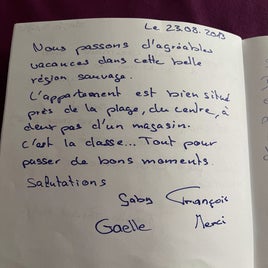 Le 23.08.2013
Nous passons d'agréables
vacances dans cette belle
région sauvage.
L'appartement est bien situé
près de la plage, du centre, à
deux pas d'un magasin.
c'est la classe... Tout pour
passer de bons moments.
Salutations
Gaby François
Gaelle Merci